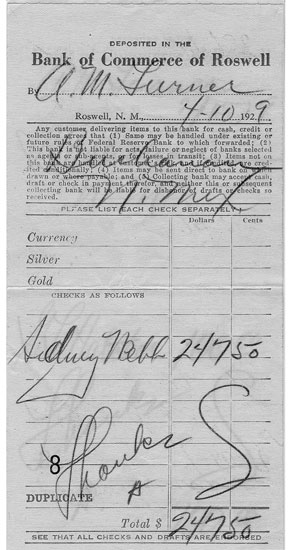 DEPOSITED IN THE
Bank of Commerce of Roswell
By A. M. Turner
Roswell, N. M., 4-10 1929
Any customer delivering items to this bank for cash, credit or
collection agrees that (1) Same may be handled under existing or
future rules of Federal Reserve Bank to which forwarded; (2)
This bank is not liable for acts, failure or neglect of banks selected
as agents, or losses in transit; (3) Items not on
this bank are credited
conditionally; (4) Items may be sent direct to bank on which
drawn or where payable; and (5) Collecting bank may accept cash,
draft or check in payment therefor, and neither this or subsequent
collecting bank will be liable for dishonor of drafts or checks so
received.
N. Mex
PLEASE LIST EACH CHECK SEPARATELY
Dollars Cents
Currency
Silver
Gold
CHECKS AS FOLLOWS
Sidney Webb 247 50
Thanks
8
DUPLICATE
Total $ 247 50
SEE THAT ALL CHECKS AND DRAFTS ARE ENDORSED